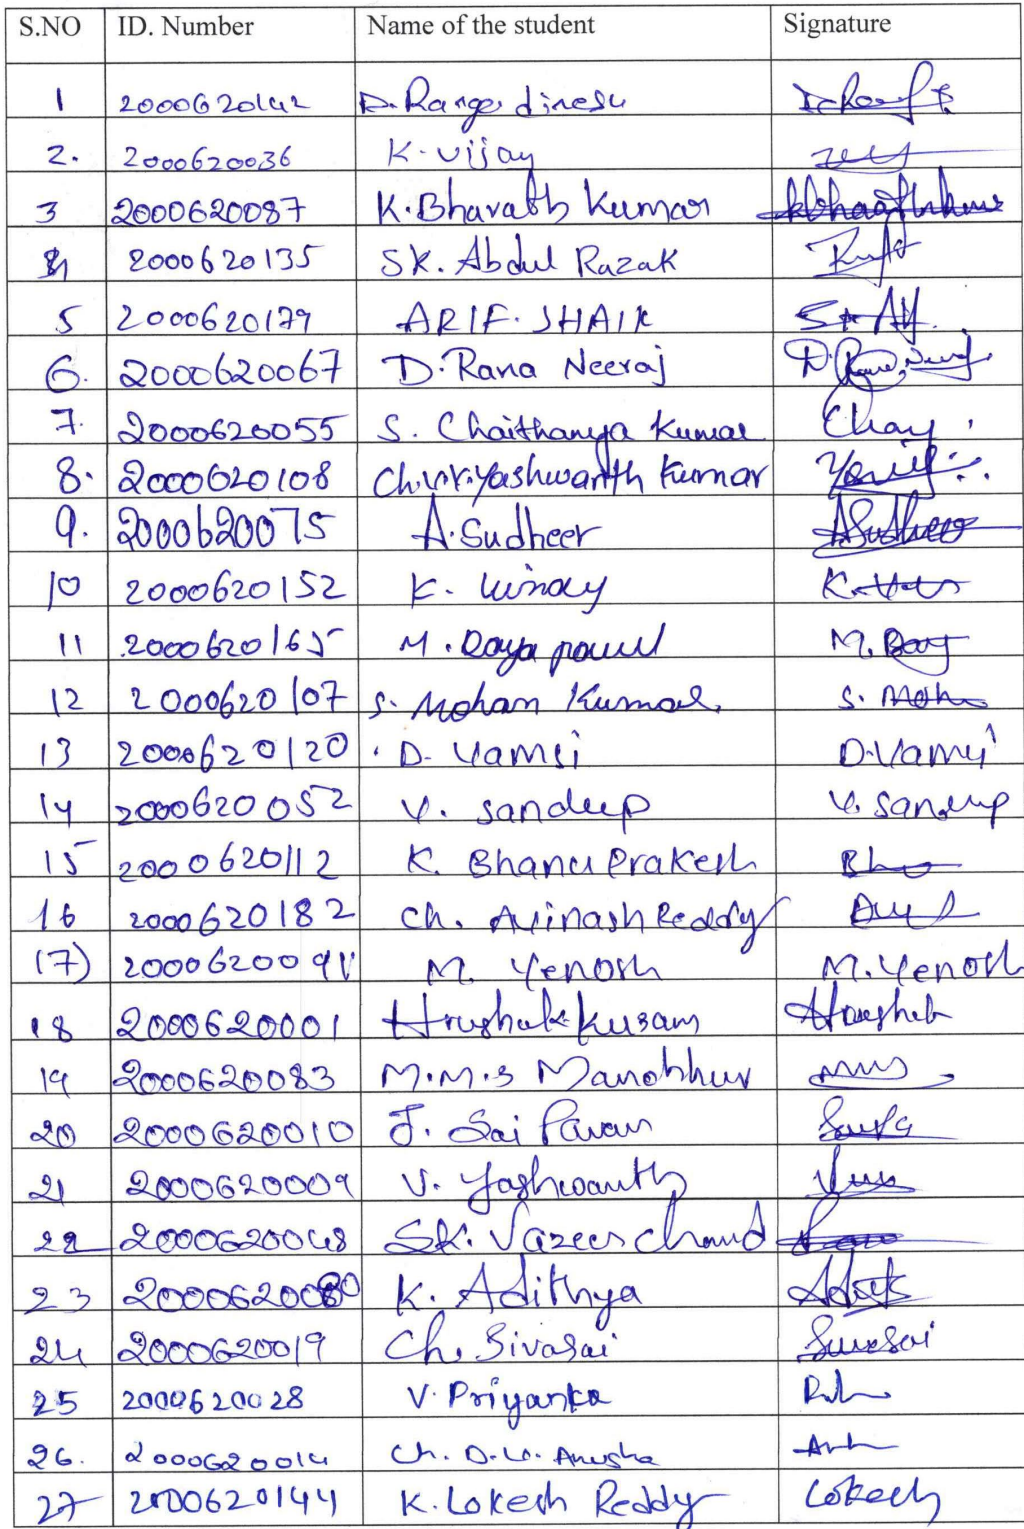 S.NO ID. Number Name of the student Signature
1 2000620142 D. Range dinesh
2. 2000620036 K. Vijay
3 2000620087 K. Bharath Kumar
4 2000620135 SK. Abdul Razak
5 2000620179 ARIF. SHAIK
6. 2000620067 D. Rana Neeraj
7. 2000620055 S. Chaithanya Kumar
8. 2000620108 Ch.V.V.Yashwanth Kumar
9. 2000620075 A. Sudheer ASudheer
10 2000620152 K. Vinay
11 2000620165 M. Daya
12 2000620107 S. Mohan Kumar. S. Moh
13 2000620120 D. Vamsi D.Vamsi
14 2000620052 V. sandeep V. sandeep
15 2000620112 K. Bhanu Prakesh
16 2000620182 Ch. Avinash Reddy
17) M. Yenosh M. Yenosh
18 2000620001 Hrushak Kusam
19 2000620083 M.M.S
20 2000620010 J. Sai Pavan
21 2000620009 V. Yashwanth
22 2000620048 SK. Vazeer chand
23 2000620080 K. Adithya
24 2000620019 Ch. Sivasai Sivasai
25 2000620028 V. Priyanka
26. 2000620014 Ch. D.V. Anusha
27 2000620144 K. Lokesh Reddy Lokesh